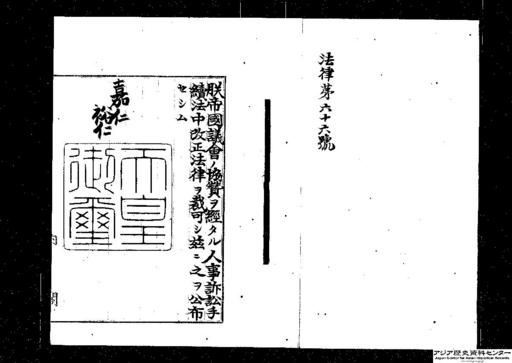 法律第六十六號
朕帝國議會ノ協贊ヲ經タル人事訴訟手
續法中改正法律ヲ裁可シ茲ニ之ヲ公布
セシム
嘉仁
裕仁
天皇
御璽
内
閣
アジア歴史資料センター
Japan Center for Asian Historical Records